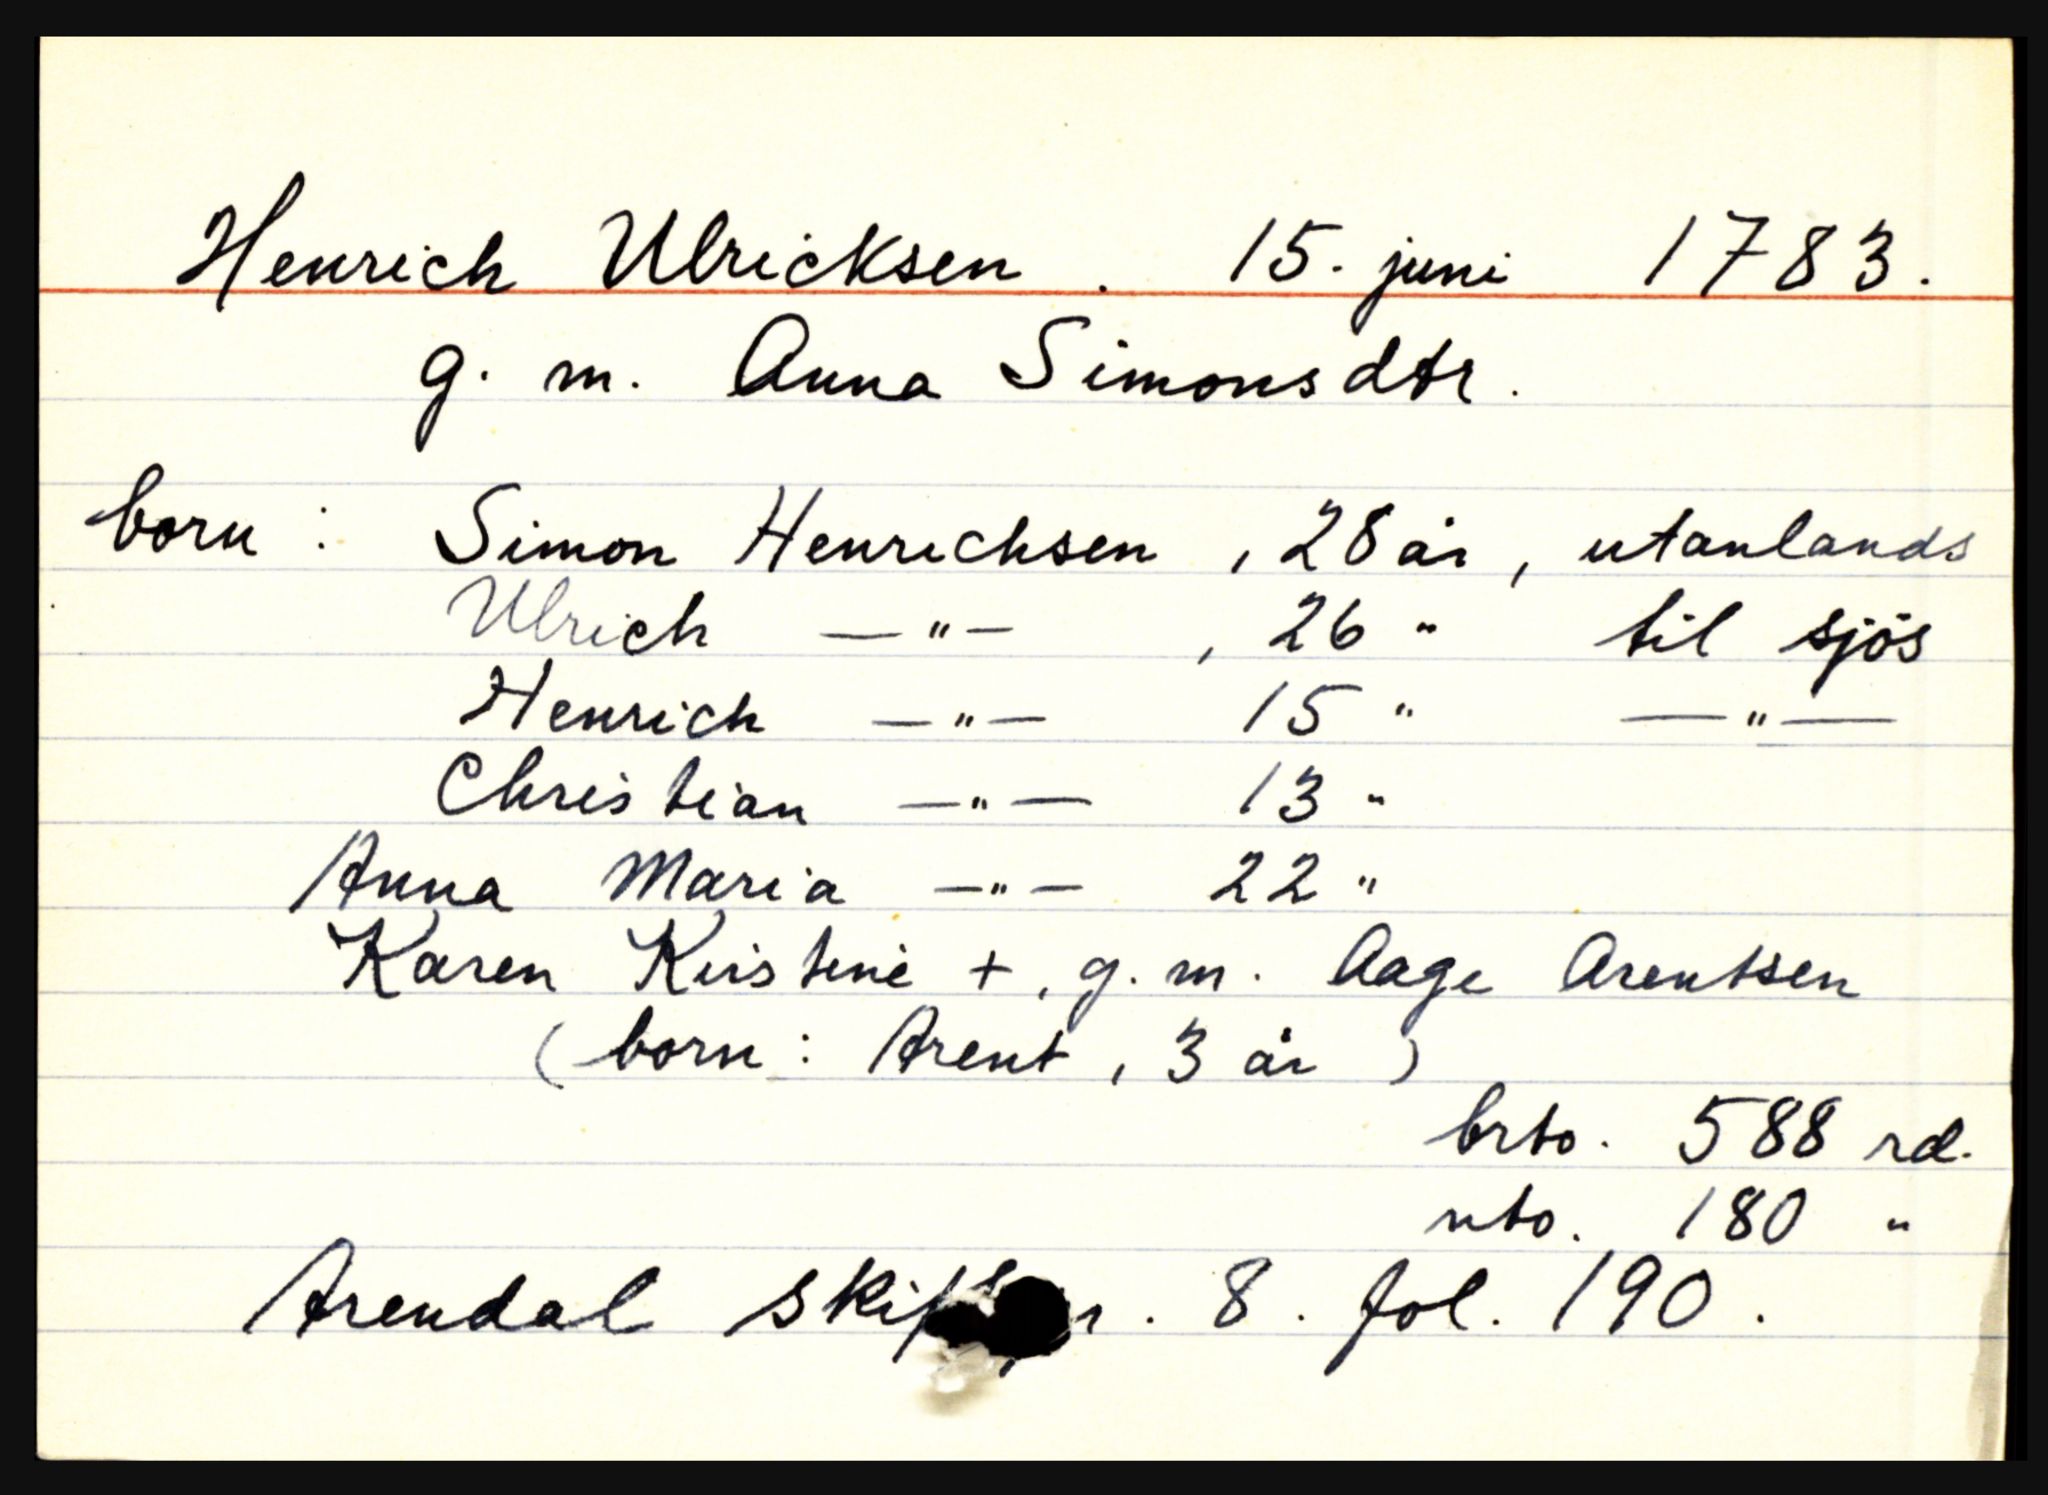 Henrich Ulricksen. 15. juni 1783.
g. m. Anna Simonsdtr.
born: Simon Henrichsen, 28 år, utanlands
Ulrich —"—, 26 " til sjös
Henrich —"— 15 " —"—
Christian —"— 13 "
Anna Maria —"— 22 "
Karen Kirstine +, g. m. Aage Arentsen
(born: Arent, 3 år)
brto. 588 rd.
nto. 180 "
Arendal 8. fol. 190.